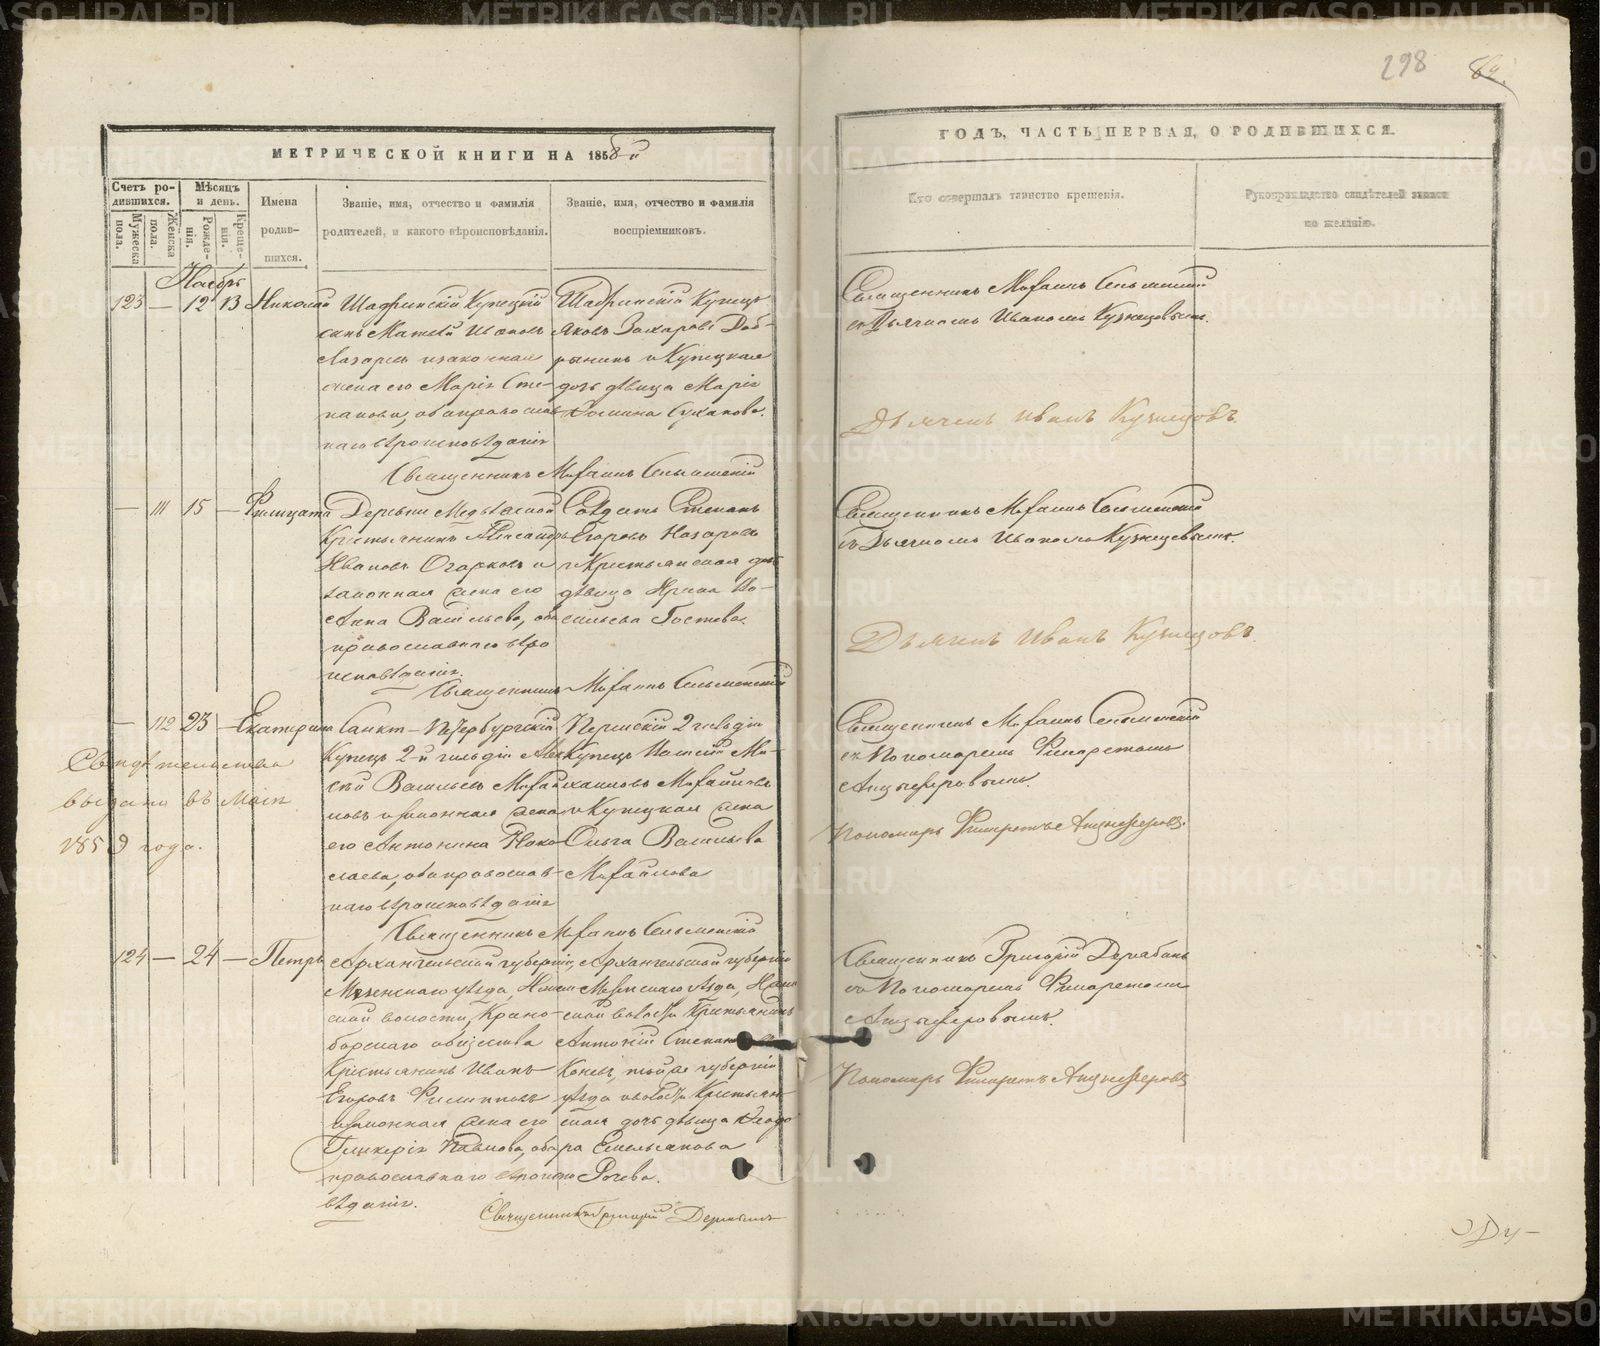 298
МЕТРИЧЕСКОЙ КНИГИ НА 1858й
ГОДЪ, ЧАСТЬ ПЕРВАЯ, О РОДИВШИХСЯ.
Счетъ ро-
дившихся.
Мужеска
пола.
Женска
пола.
Мѣсяцъ
и день.
Рожде-
нія.
Креще-
нія.
Имена
родив-
шихся.
Званіе, имя, отчество и фамилія
родителей, и какого вѣроисповѣданія.
Званіе, имя, отчество и фамилія
воспріемниковъ.
Кто совершалъ таинство крещенія.
Рукоприкладство свидѣтелей записи
по желанію.
Ноябрь
123 — 12 13 Николай
Шадринскій Купецкій
сынъ Матвѣй Ивановъ
Лазаревъ и законная
жена его Марія Сте-
панова, оба православ
наго вѣроисповѣданія
Шадринскій Купецъ
Яковъ Захаровъ Доб-
рынинъ и Купецкая
дочь дѣвица Марія
Суханова.
Священникъ Михаилъ
съ Дьячкомъ Иваномъ Кузнецовымъ.
Дьячекъ Иванъ Кузнецовъ.
Священникъ Михаилъ
— 111 15 —
Деревни
Крестьянинъ Александръ
Ивановъ Огарковъ и
законная жена его
Анна Васильева, оба
православнаго вѣро
исповѣданія.
Солдатъ Степанъ
Егоровъ Назаровъ
и Крестьянская дочь
дѣвица Ирина Ва-
сильева Гостева.
Священникъ Михаилъ
съ Дьячкомъ Иваномъ Кузнецовымъ.
Дьячекъ Иванъ Кузнецовъ.
Священникъ Михаилъ
— 112 23 — Екатерина
Свидѣтельство
выдано въ Маѣ
1859 года.
Санкт-Петербургскій
Купецъ 2-й гильдіи Алек
сѣй Васильевъ Михайло
вовъ и законная жена
его Антонина Нико
лаева, оба православ-
наго вѣроисповѣданія
Пермскій 2 гильдіи
Купецъ
хаиловъ Михайловъ
и Купецкая жена
Ольга Васильева
Михайлова
Священникъ Михаилъ
съ Пономаремъ Филаретомъ
Анцыферовымъ.
Пономарь Филаретъ Анцыферовъ.
Священникъ Михаилъ
124 — 24 — Петръ
Архангельской губерніи,
Мезенскаго уѣзда,
ской волости, Красно-
борскаго общества
Крестьянинъ Иванъ
Егоровъ Филипповъ
и законная жена его
Гликерія Павлова, оба
православнаго вѣроиспо
вѣданія.
Архангельской губерніи
Мезенскаго уѣзда,
ской волости Крестьянинъ
Антоній Степановъ
Коневъ, той же губерніи
уѣзда и волости Крестьян-
ская дочь дѣвица Ѳеодо
ра Емельянова
Рочева.
Священникъ Григорій Дерябинъ
съ Пономаремъ Филаретомъ
Анцыферовымъ.
Пономарь Филаретъ Анцыферовъ
Священникъ Григорій Дерябинъ
METRIKI.GASO-URAL.RU